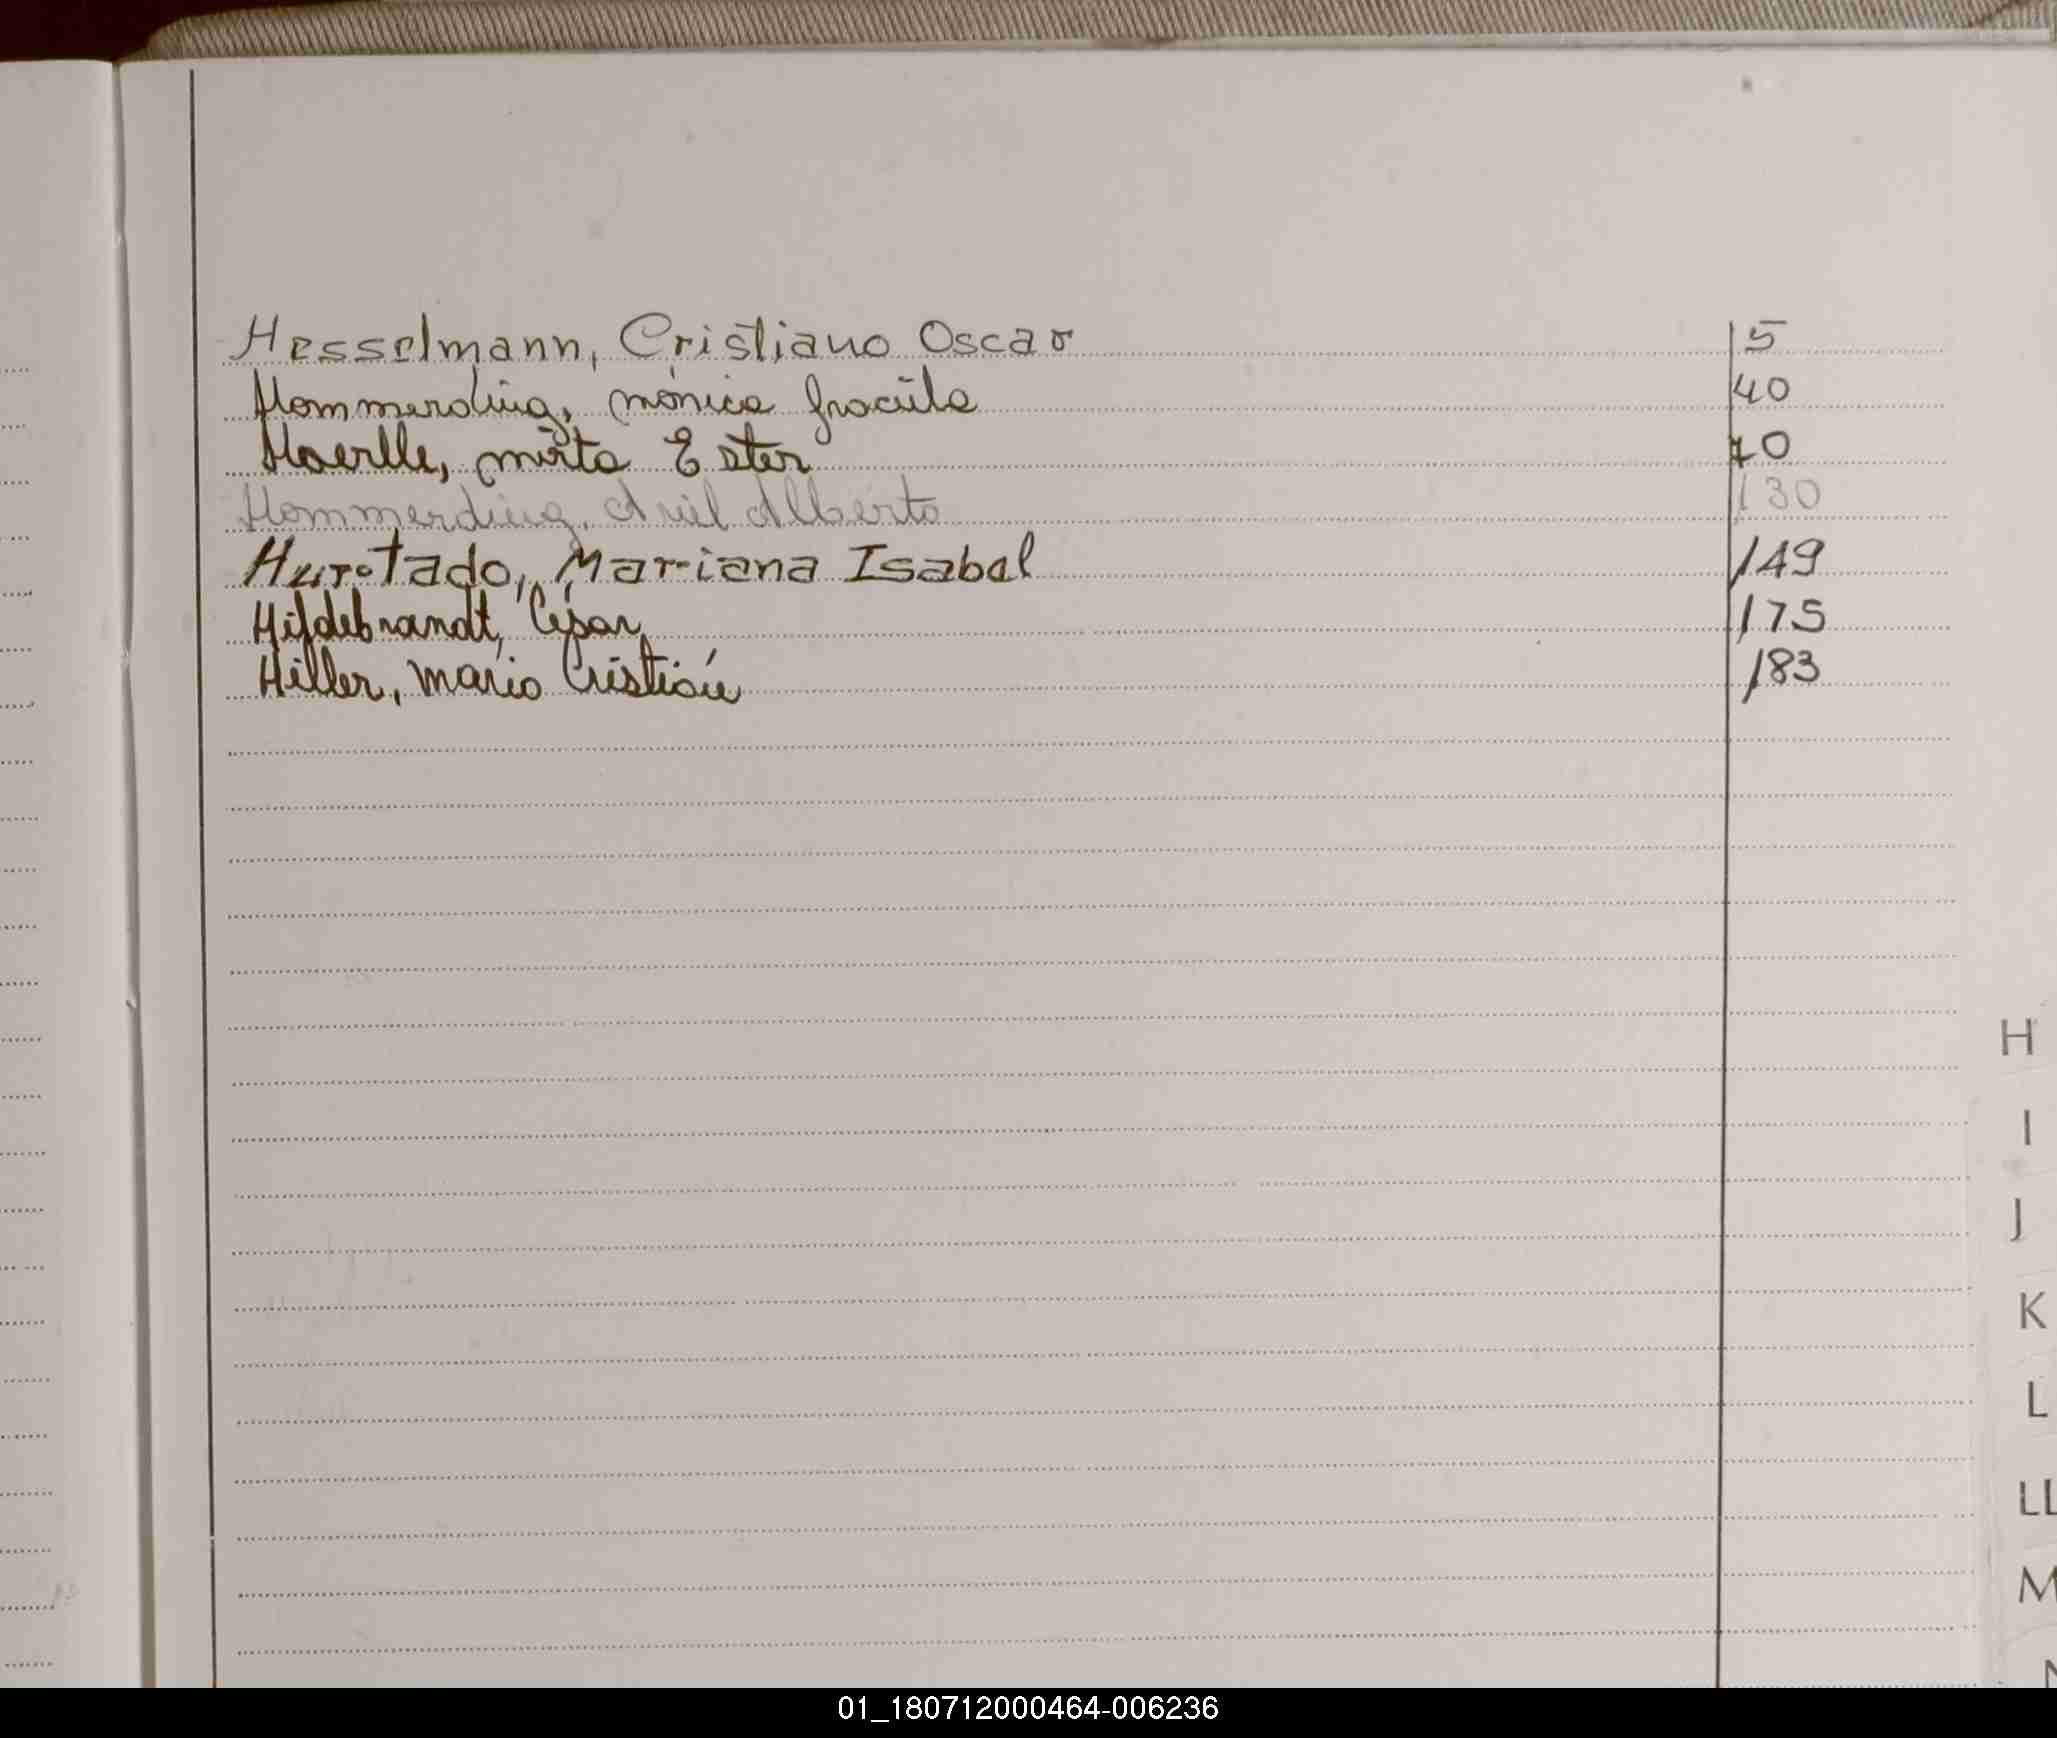 Hesselmann, Cristiano Oscar 5
Hommerding, mónica graciela 40
Hoerlle, mirta Ester 70
Hommerding, Ariel Alberto 130
Hurtado, Mariana Isabel 149
Hildebrandt, César 175
Hiller, mario Cristián 183
H
I
J
K
L
LL
M
01_180712000464-006236